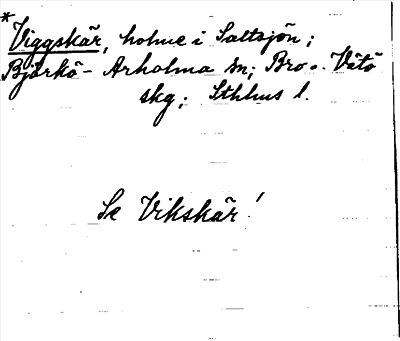 *
Viggskär, holme i Saltsjön;
Björkö-Arholma sn; Bro o. Vätö
skg; Sthlms l.
Se Vikskär!